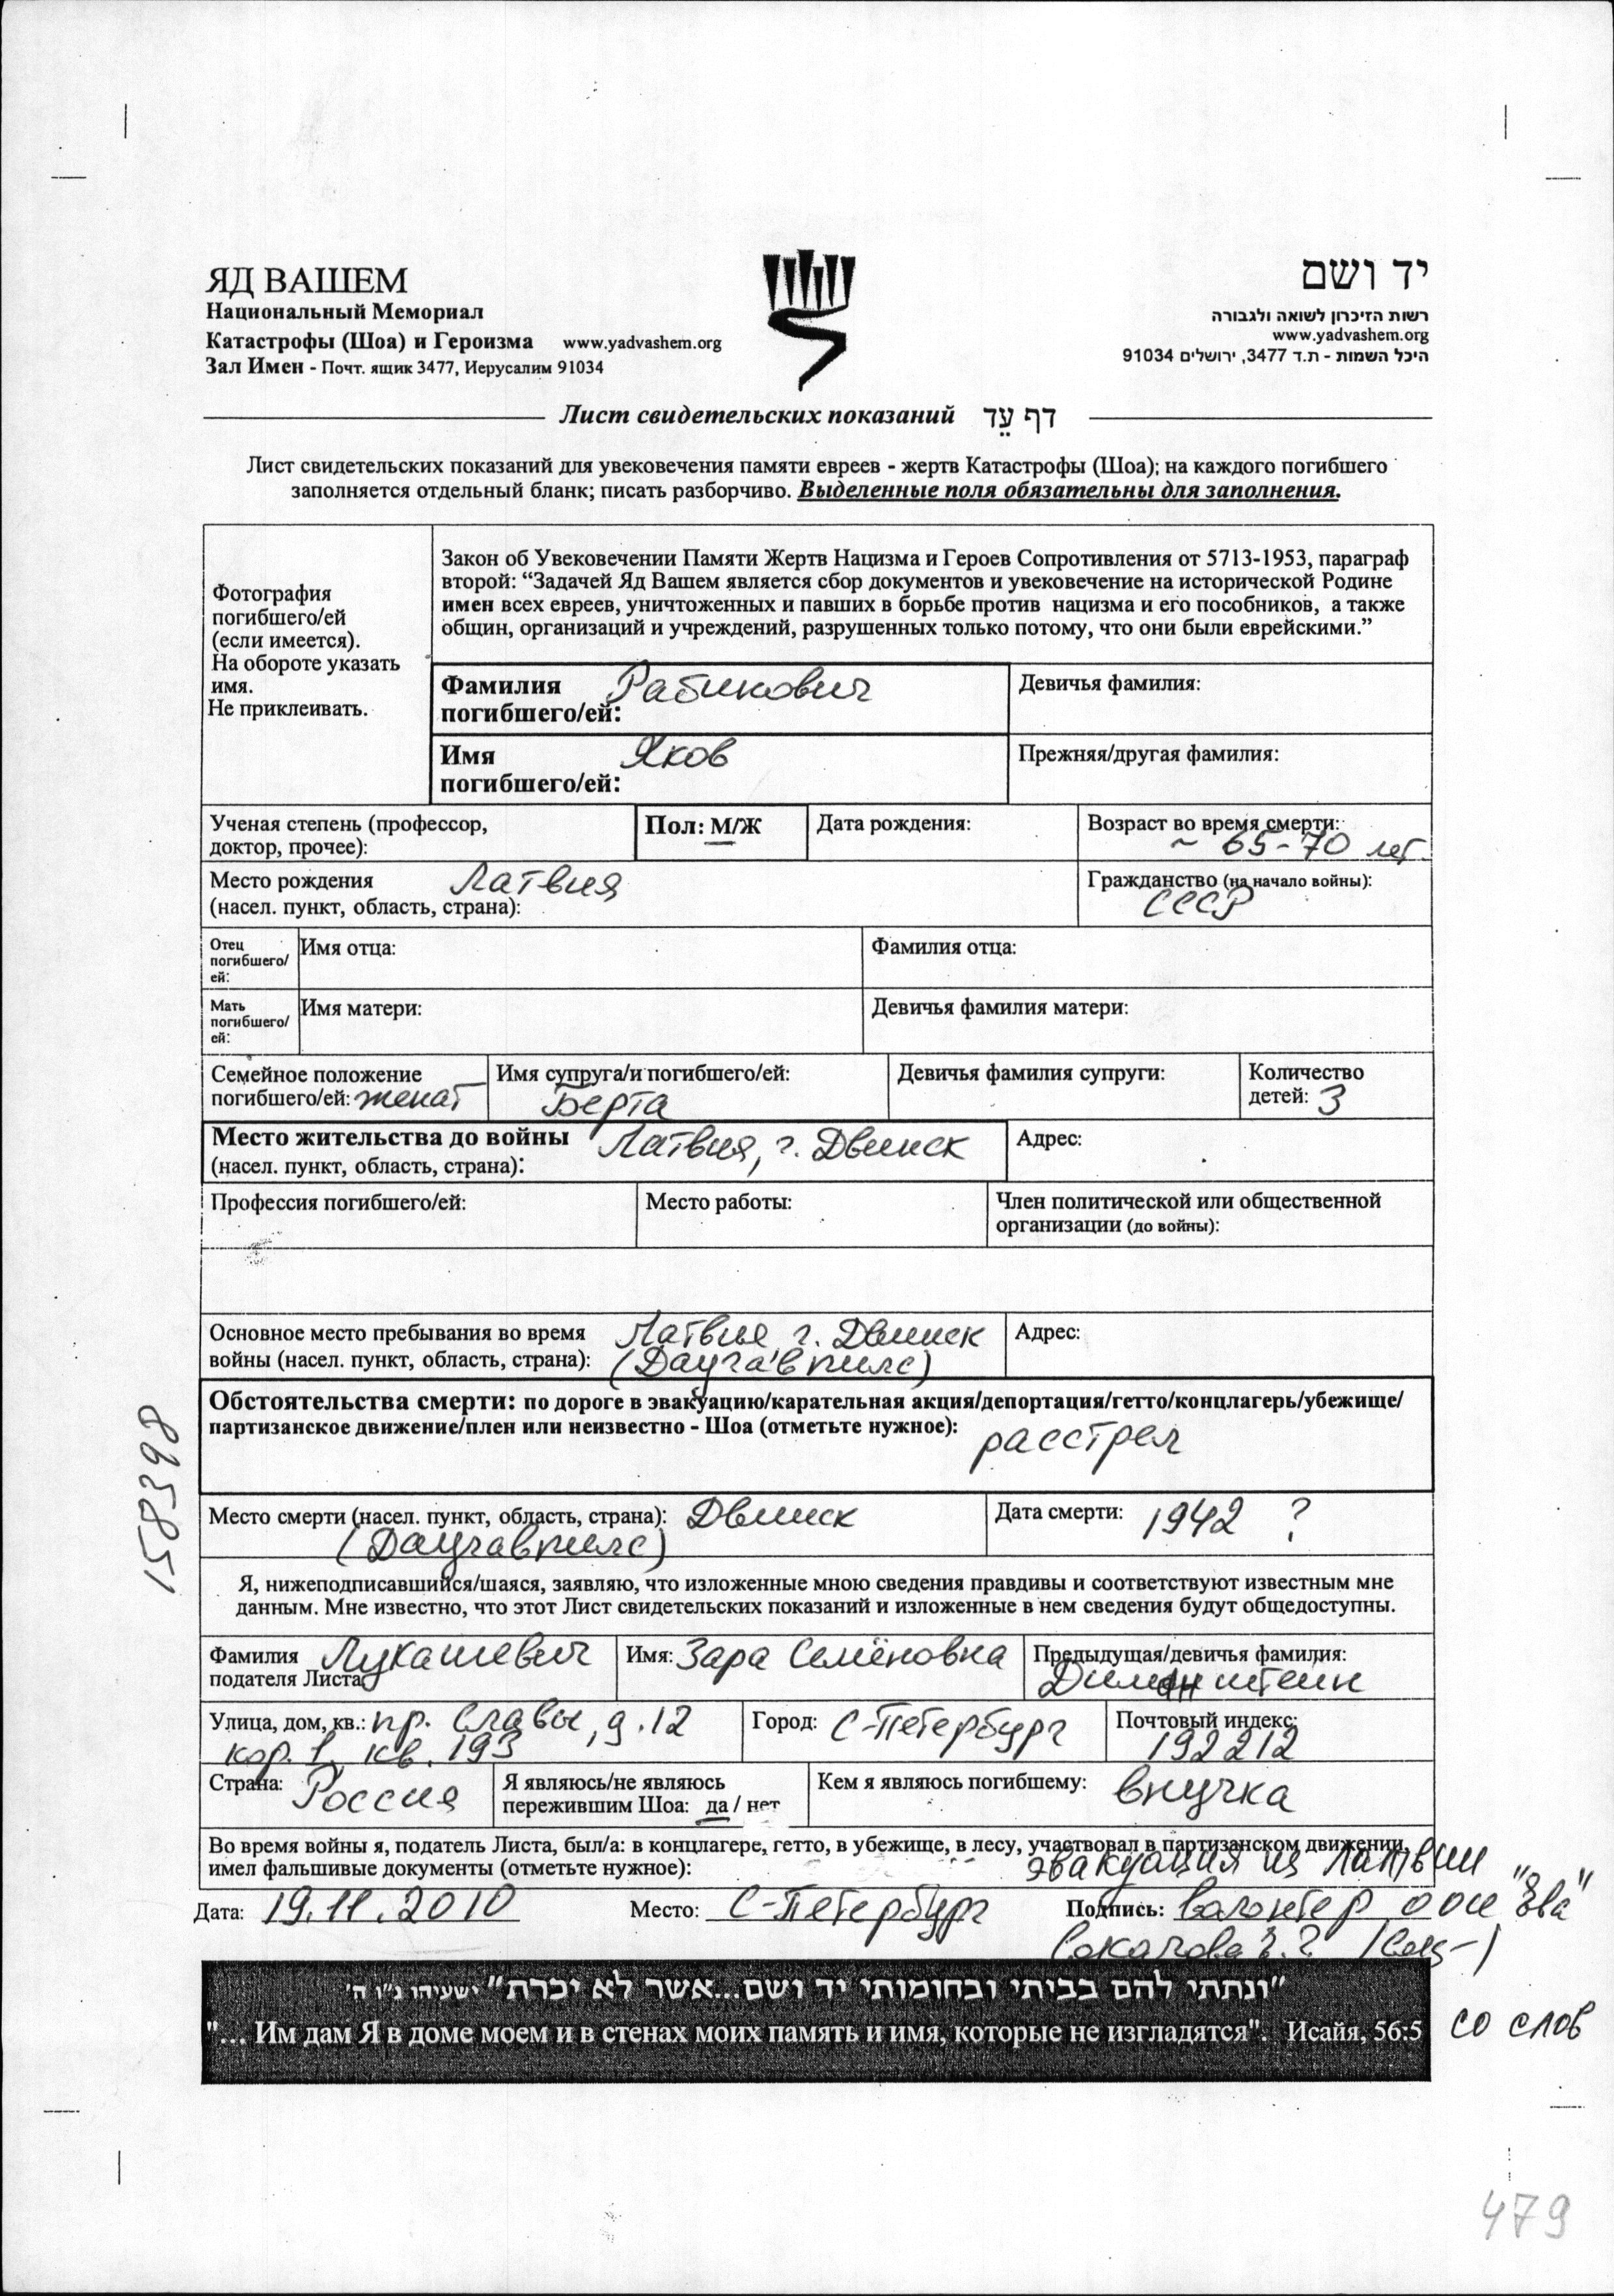 ЯД ВАШЕМ
Национальный Мемориал
Катастрофы (Шоа) и Героизма www.yadvashem.org
Зал Имен - Почт. ящик 3477, Иерусалим 91034
יד ושם
רשות הזיכרון לשואה ולגבורה
www.yadvashem.org
היכל השמות - ת.ד 3477, ירושלים 91034
Лист свидетельских показаний דף עֵד
Лист свидетельских показаний для увековечения памяти евреев - жертв Катастрофы (Шоа); на каждого погибшего
заполняется отдельный бланк; писать разборчиво. Выделенные поля обязательны для заполнения.
Фотография
погибшего/ей
(если имеется).
На обороте указать
имя.
Не приклеивать.
Закон об Увековечении Памяти Жертв Нацизма и Героев Сопротивления от 5713-1953, параграф
второй: “Задачей Яд Вашем является сбор документов и увековечение на исторической Родине
имен всех евреев, уничтоженных и павших в борьбе против нацизма и его пособников, а также
общин, организаций и учреждений, разрушенных только потому, что они были еврейскими.”
Фамилия Рабинович
погибшего/ей:
Девичья фамилия:
Имя Яков
погибшего/ей:
Прежняя/другая фамилия:
Ученая степень (профессор,
доктор, прочее):
Пол: М/Ж
Дата рождения:
Возраст во время смерти:
~ 65-70 лет.
Место рождения Латвия
(насел. пункт, область, страна):
Гражданство (на начало войны):
СССР
Отец
погибшего/
ей:
Имя отца:
Фамилия отца:
Мать
погибшего/
ей:
Имя матери:
Девичья фамилия матери:
Семейное положение
погибшего/ей: женат
Имя супруга/и погибшего/ей:
Берта
Девичья фамилия супруги:
Количество
детей: 3
Место жительства до войны Латвия, г. Двинск
(насел. пункт, область, страна):
Адрес:
Профессия погибшего/ей:
Место работы:
Член политической или общественной
организации (до войны):
Основное место пребывания во время Латвия, г. Двинск
войны (насел. пункт, область, страна): (Даугавпилс)
Адрес:
Обстоятельства смерти: по дороге в эвакуацию/карательная акция/депортация/гетто/концлагерь/убежище/
партизанское движение/плен или неизвестно - Шоа (отметьте нужное): расстрел
158398
Место смерти (насел. пункт, область, страна): Двинск
(Даугавпилс)
Дата смерти: 1942 ?
Я, нижеподписавшийся/шаяся, заявляю, что изложенные мною сведения правдивы и соответствуют известным мне
данным. Мне известно, что этот Лист свидетельских показаний и изложенные в нем сведения будут общедоступны.
Фамилия Лукашевич
подателя Листа
Имя: Зара Семёновна
Предыдущая/девичья фамилия:
Димантштейн
Улица, дом, кв.: пр. Славы, д. 12
кор. 1, кв. 193
Город: С-Петербург
Почтовый индекс:
192212
Страна: Россия
Я являюсь/не являюсь
пережившим Шоа: да / нет
Кем я являюсь погибшему: внучка
Во время войны я, податель Листа, был/а: в концлагере, гетто, в убежище, в лесу, участвовал в партизанском движении,
имел фальшивые документы (отметьте нужное): эвакуация из Латвии
Дата: 19.11.2010 Место: С-Петербург Подпись: волонтер оои "Ева"
"ונתתי להם בביתי ובחומותי יד ושם...אשר לא יכרת" ישעיהו נ"ו ה'
"... Им дам Я в доме моем и в стенах моих память и имя, которые не изгладятся". Исайя, 56:5
со слов
479